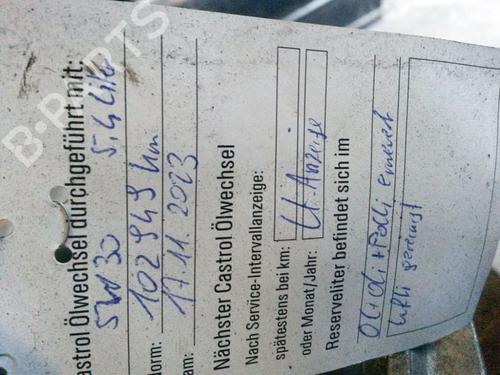 astrol Ölwechsel durchgeführt mit:
5W30 5,4 Liter
102949 km
orm:
17.11.2023
am:
Nächster Castrol Ölwechsel
Nach Service-Intervallanzeige:
spätestens bei km:
lt. Anzeige
oder Monat/Jahr:
Reserveliter befindet sich im
erneuert
gereinigt
B-PARTS